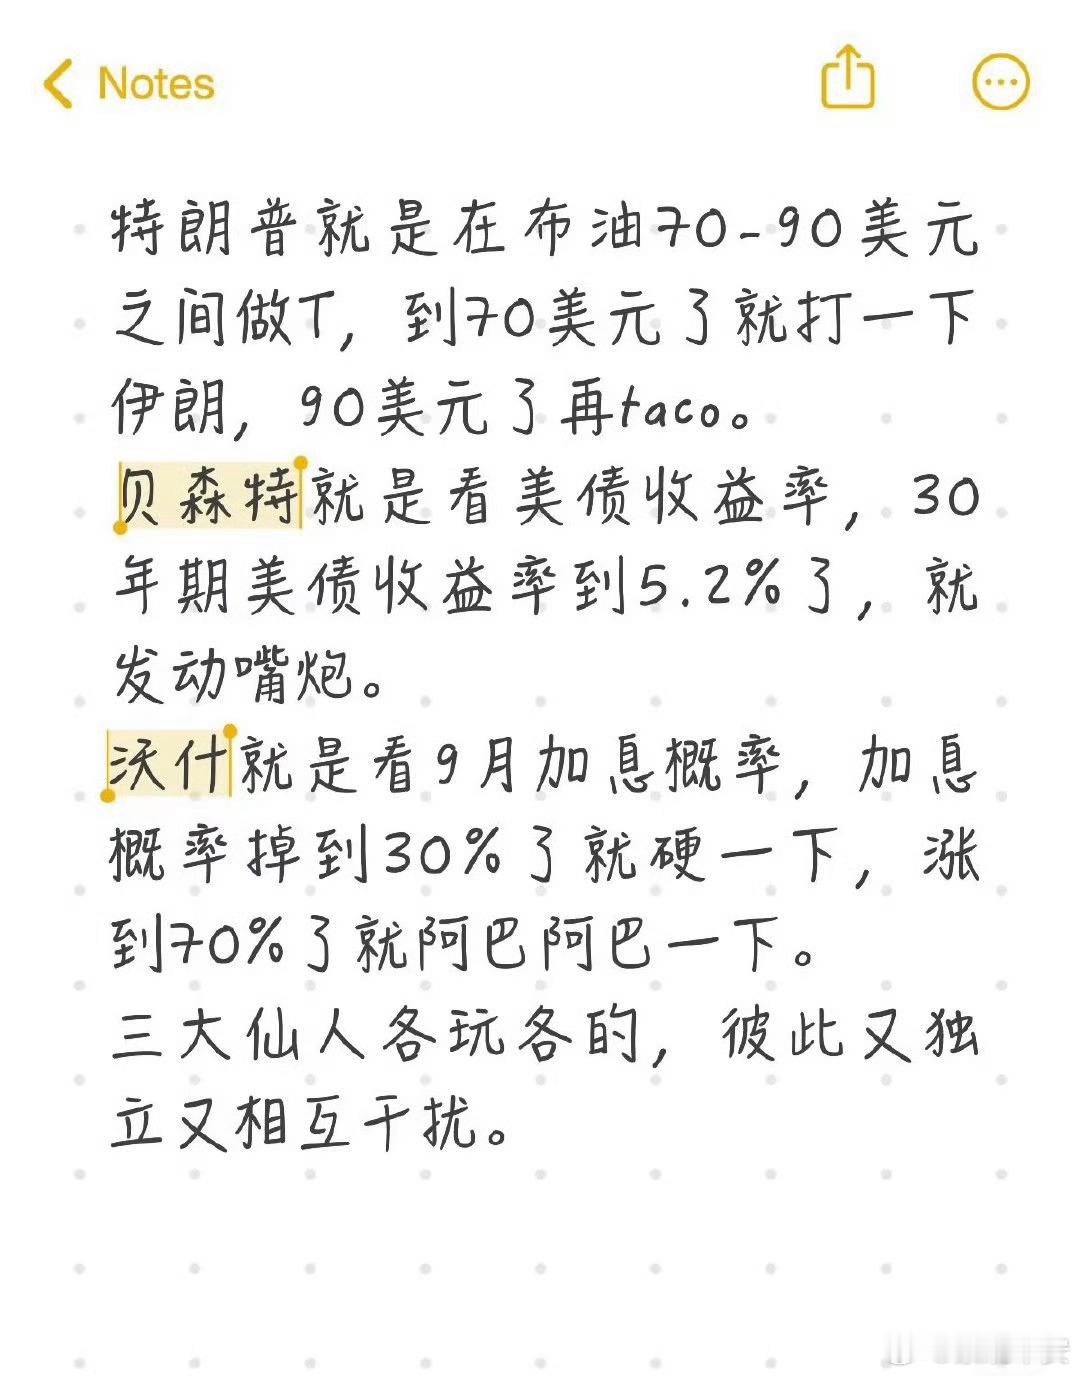 Notes
特朗普就是在布油70-90美元
之间做T，到70美元了就打一下
伊朗，90美元了再taco。
贝森特就是看美债收益率，30
年期美债收益率到5.2%了，就
发动嘴炮。
沃什就是看9月加息概率，加息
概率掉到30%了就硬一下，涨
到70%了就阿巴阿巴一下。
三大仙人各玩各的，彼此又独
立又相互干扰。